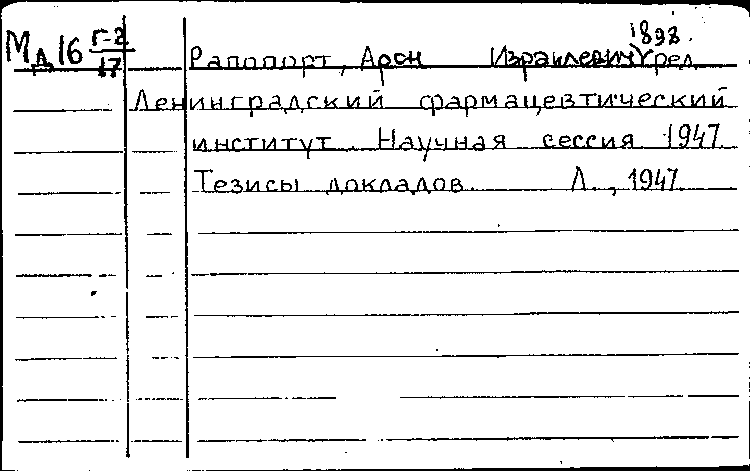 1898.
Мд 16 Г-2/17 Рапопорт, Арон Израилевич, ред.
Ленинградский фармацевтический
институт. Научная сессия 1947.
Тезисы докладов. Л., 1947.